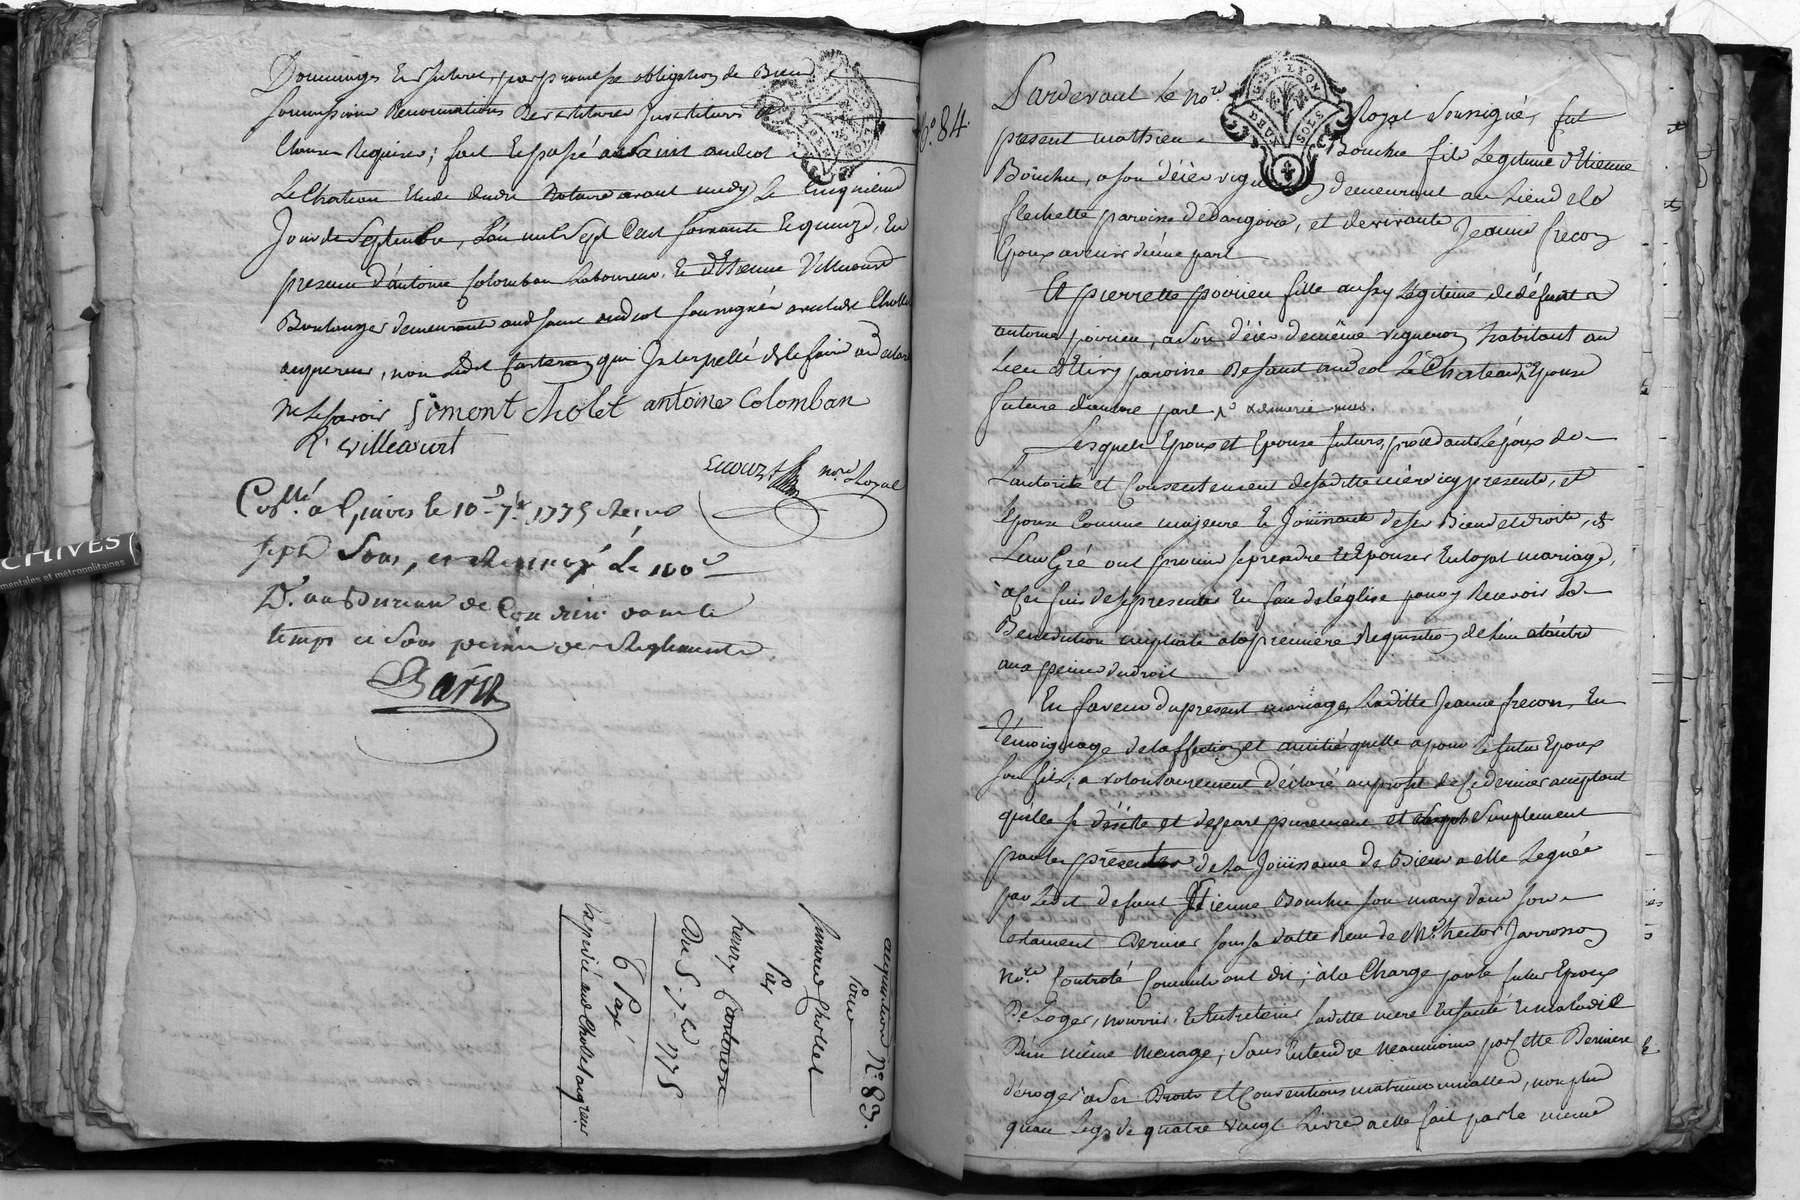 Dommages Interets, par promesse obligation de Biens
soumission Renonciations Restitutions
Clauses Requises; fait Et passé audit Saint andeol
Le Chateau Etude dudit Notaire avant midy Le Cinquieme
Jour de Septembre, L'an mil Sept Cent soixante Et quinze, En
presence d'antoine Colomban Laboureur, Et d'Etienne Villecourt
Boulanger demeurants audit Saint andeol soussignés avec ledit Chollet
acquereur, non Ledit qui Interpellé de le faire a declaré
Ne le Savoir Simont cholet antoine Colomban
E villecourt
nore Royal
Collé. à Givors le 10e 7bre 1775 Recu
Sept Sous, et Renvoyé Le 100e
Dr. au Bureau de Condrieu dans le
temps et Sous peine des Reglements
acquisition No. 83.
Pour
Simond Chollet
Par
henry
Du 5. 7bre 1775
Expédié aud Chollet acquereur
No. 84.
Pardevant Le nore Royal Soussigné, fut
present mathieu Bouchu fils Legitime d'Etienne
Bouchu, a son déces vigneron demeurant au Lieu de la
flechette paroisse de dargoire, et de vivante Jeanne frecon
Epoux avenir d'une part
GEN. DE LYON
DEUX SOLS
Et pierrette poirieu fille aussy Légitime de défunt
antoine poirieu, a son déces de même vigneron habitant au
Lieu paroisse de Saint andeol Le Chateau, Epouse
future d'autre part
Lesquels Epoux et Epouse futurs, procedants L'epoux de
L'autorité et Consentement de sa ditte mère icy presente, et
lepouse Comme majeure Et Joüissante de ses Biens et droits, de
Leur Gré ont promis se prendre Et Epouser En loyal mariage,
à ces fins de se presenter En face de L'église pour y Recevoir La
Benediction nuptiale ala premiere Requisition de L'un a L'autre
aux peines du droit
En faveur du present mariage, Laditte Jeanne frecon, En
Témoignage de Laffection et amitié qu'elle a pour Le futur Epoux
son fils, a volontairement déclaré au profit de ce dernier acceptant
qu'elle se désiste et depart purement et Simplement
par les presentes de la Joüissance de Biens a elle Leguée
par Ledit defunt Etienne Bouchu son mary dans son
testament Dernier sous sa datte Reçu de Me hector Jarrosson
nore Controlé Comme ont dit; à la Charge par le futur Epoux
De Loger, nourrir Et Entretenir saditte mere En santé Et maladie
D'un même menage, Sans Entendre neanmoins par Cette Derniere
déroger a ses Droits et Conventions matrimonialles, non plus
qu'au Legs de quatre vingt Livres a elle fait par le meme
CHIVES
mentales et métropolitaines